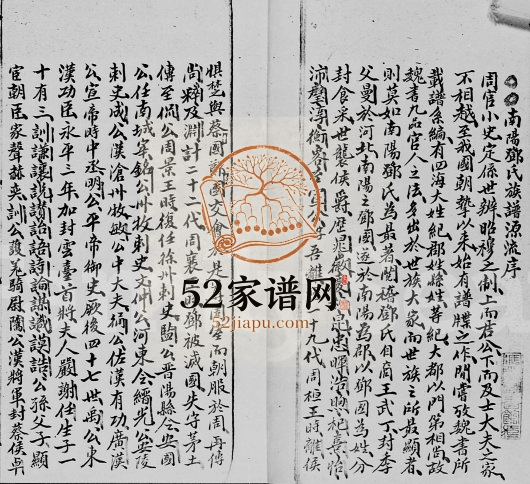 南陽鄧氏族譜源流序
周官小史定係世辦昭穆之制上而君公下而及士大夫之家
不相越至我國朝摯以来始有譜牒之作間嘗攷魏書所
載譜系編有四海大姓紀郡姓縣姓等紀大都以門第相尚故
魏書九品官人之法多出於世族大家而世族之所最顯者
則莫如南陽鄧氏為最著閥稽鄧氏自商王武丁封季
父曼於河北南陽之鄧國遂於南陽為郡以鄧國為姓分
封食采世襲侯爵歷
沛 淳衡 吾離 十九代周桓王時離侯
惧楚與蔡國 國交會 而朝服於周再傳
尚粹及淵計二十二代周襄 鄧被滅國失守茅土
傳至個公周景王時復任徐州刺史 公晋陽縣令安國
公任南城宰銘公州牧刺史文仲公河東令 光公安陵
刺史成公漢滄州牧 公中大夫福公佐漢有功廣漢
公宣帝時中丞明公平帝御史厥後四十七世禹公東
漢功臣永平三年加封雲臺首將夫人嚴謝任生子一
十有三訓謙讓説讚 語詩論謀識謨 公孫父子顯
宦朝臣家聲赫奕訓公護羌騎尉隲公漢將軍封蔡侯卓
52家谱网
52jiapu.com